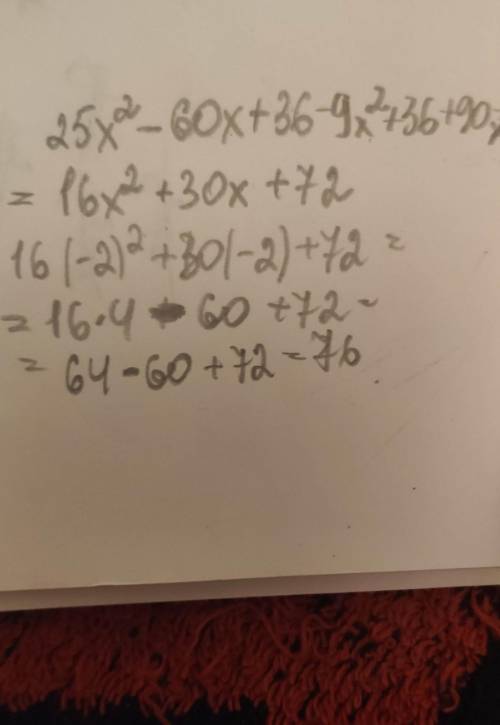 25x² - 60x + 36 - 9x² + 36 + 90x
= 16x² + 30x + 72
16(-2)² + 30(-2) + 72 =
= 16·4 - 60 + 72 =
= 64 - 60 + 72 = 76